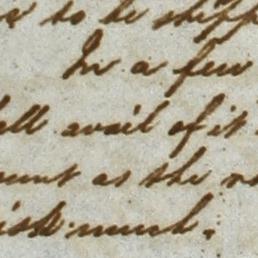 to be shipp
In a few
all avail of it
ount as the
isk much.